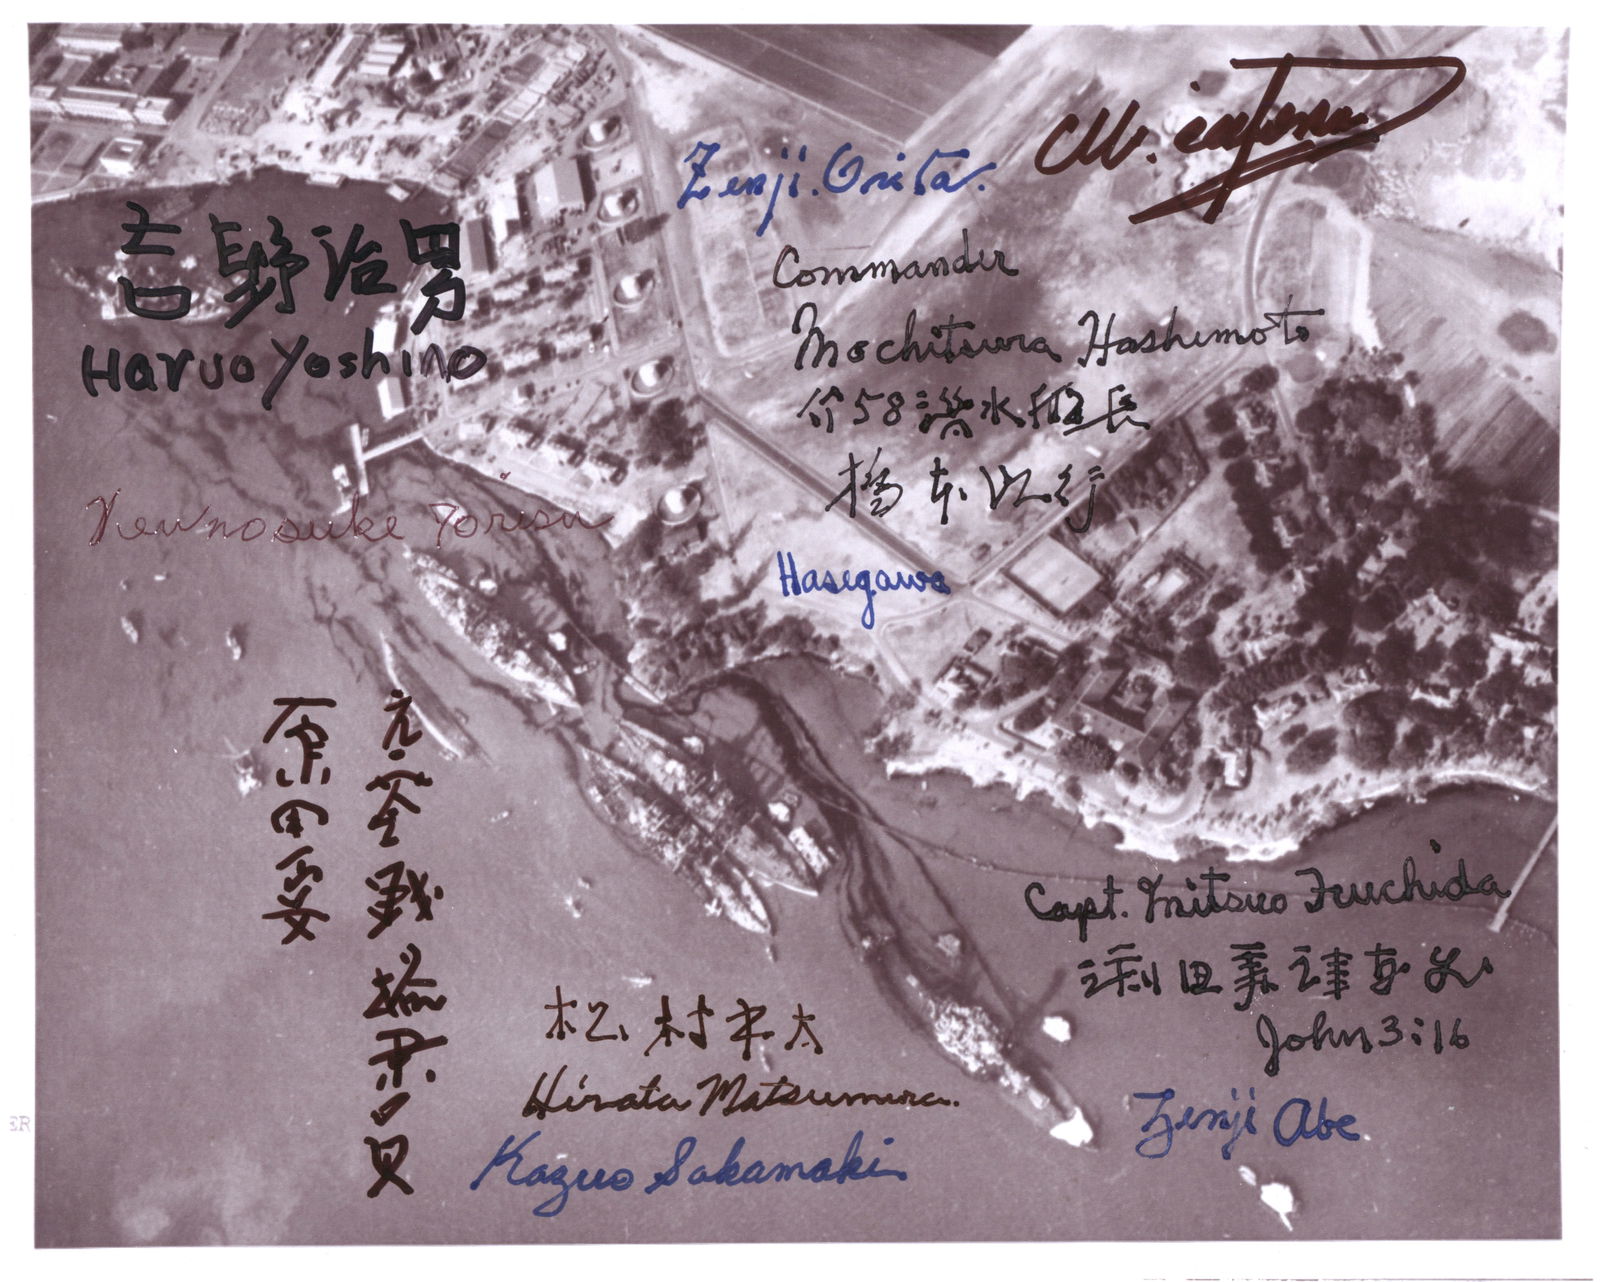 Zenji.Orita.
吉野治男
Haruo Yoshino
Commander
Mochitsura Hashimoto
伊58潜水艦長
橋本以行
Kennosuke Torisu
Hasegawa
元零戦搭乗員
原田要
Capt. Mitsuo Fuchida
渕田美津雄
John 3:16
松村平太
Hirata Matsumura.
Zenji Abe
Kazuo Sakamaki
ER